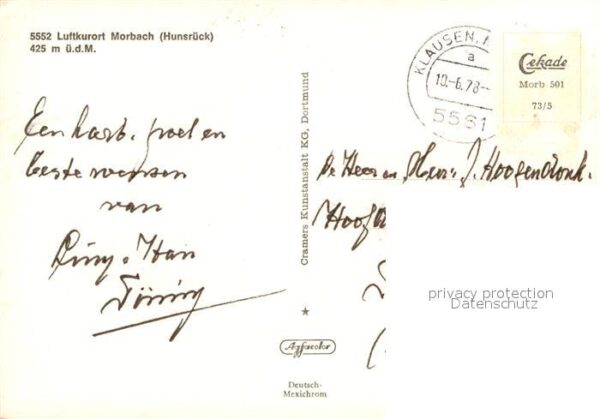 5552 Luftkurort Morbach (Hunsrück)
425 m ü.d.M.
KLAUSEN,
a
10.-6.78-
5561
Cekade
Morb 501
73/5
Een hart. groet en
beste wensen
van
Han
Cramers Kunstanstalt KG, Dortmund
De Heer en Mevr. J. Hoogendonk.
privacy protection
Datenschutz
Agfacolor
Deutsch-
Mexichrom